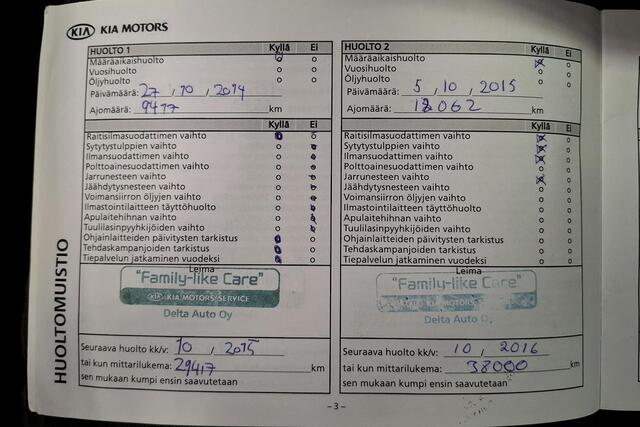 KIA KIA MOTORS
HUOLTO 1 Kyllä Ei
Määräaikaishuolto
Vuosihuolto
Öljyhuolto
Päivämäärä: 27 , 10 , 2014
Ajomäärä: 9417 km
Kyllä Ei
Raitisilmasuodattimen vaihto
Sytytystulppien vaihto
Ilmansuodattimen vaihto
Polttoainesuodattimen vaihto
Jarrunesteen vaihto
Jäähdytysnesteen vaihto
Voimansiirron öljyjen vaihto
Ilmastointilaitteen täyttöhuolto
Apulaitehihnan vaihto
Tuulilasinpyyhkijöiden vaihto
Ohjainlaitteiden päivitysten tarkistus
Tehdaskampanjoiden tarkistus
Tiepalvelun jatkaminen vuodeksi
Leima
"Family-like Care"
KIA KIA MOTORS SERVICE
Delta Auto Oy
Seuraava huolto kk/v: 10 , 2015
tai kun mittarilukema: 29417 km
sen mukaan kumpi ensin saavutetaan
HUOLTO 2 Kyllä Ei
Määräaikaishuolto
Vuosihuolto
Öljyhuolto
Päivämäärä: 5 , 10 , 2015
Ajomäärä: 12062 km
Kyllä Ei
Raitisilmasuodattimen vaihto
Sytytystulppien vaihto
Ilmansuodattimen vaihto
Polttoainesuodattimen vaihto
Jarrunesteen vaihto
Jäähdytysnesteen vaihto
Voimansiirron öljyjen vaihto
Ilmastointilaitteen täyttöhuolto
Apulaitehihnan vaihto
Tuulilasinpyyhkijöiden vaihto
Ohjainlaitteiden päivitysten tarkistus
Tehdaskampanjoiden tarkistus
Tiepalvelun jatkaminen vuodeksi
Leima
"Family-like Care"
KIA MOTORS
Delta Auto O
Seuraava huolto kk/v: 10 , 2016
tai kun mittarilukema: 38000 km
sen mukaan kumpi ensin saavutetaan
HUOLTOMUISTIO
– 3 –